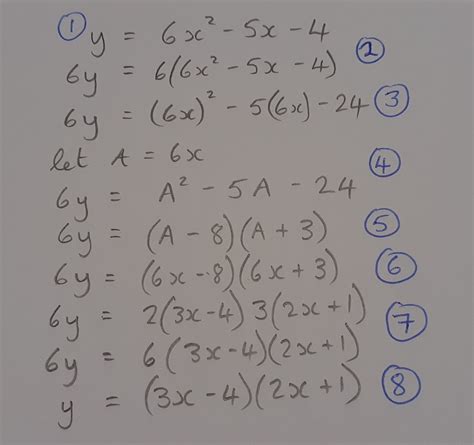 ① y = 6x² - 5x - 4
6y = 6(6x² - 5x - 4) ②
6y = (6x)² - 5(6x) - 24 ③
let A = 6x
6y = A² - 5A - 24 ④
6y = (A - 8)(A + 3) ⑤
6y = (6x - 8)(6x + 3) ⑥
6y = 2(3x - 4) 3(2x + 1) ⑦
6y = 6(3x - 4)(2x + 1)
y = (3x - 4)(2x + 1) ⑧